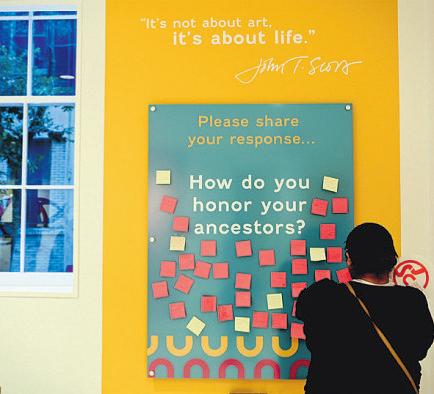 "It's not about art,
it's about life."
John T. Scott
Please share
your response...
How do you
honor your
ancestors?